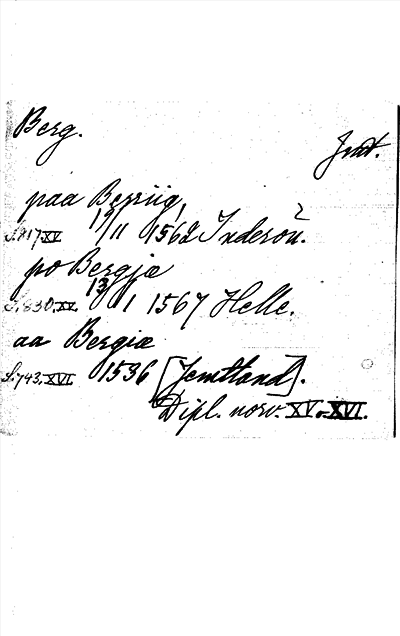 Berg.
Jmt.
paa
S. 817 XV 19/11 1562 Inderöu.
po Bergjæ
S. 830. XV. 13/1 1567 Helle.
aa Bergiæ
S. 743. XVI 1536 [Jemtland].
Dipl. norv. XV o. XVI.